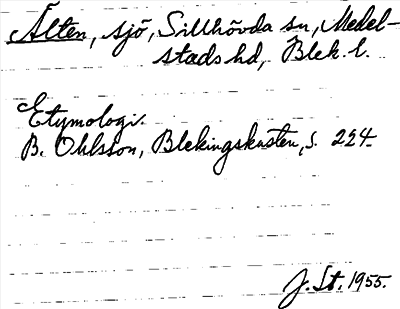 Älten, sjö, Sillhövda sn, Medel-
stads hd, Blek. l.
Etymologi.
B. Ohlsson, Blekingskusten, s. 224.
J. St. 1955.